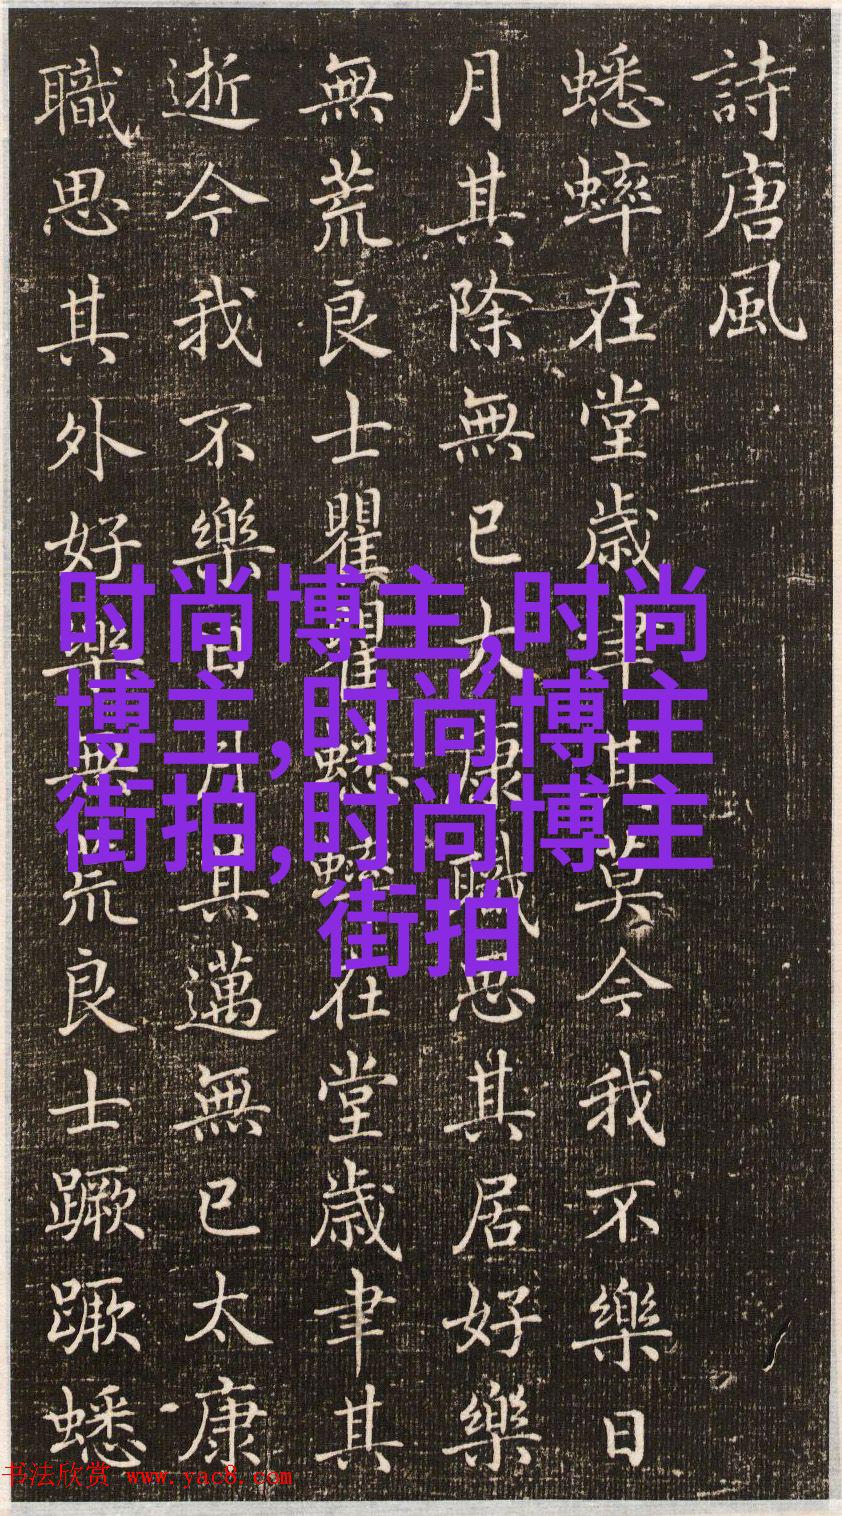 詩唐風
蟋蟀在堂歲聿其莫今我不樂日
月其除無已大康職思其居好樂
無荒良士瞿瞿蟋蟀在堂歲聿其
逝今我不樂日月其邁無已太康
職思其外好樂無荒良士蹶蹶蟋
时尚博主,时尚
博主,时尚博主
街拍,时尚博主
街拍
书法欣赏 www.yac8.com